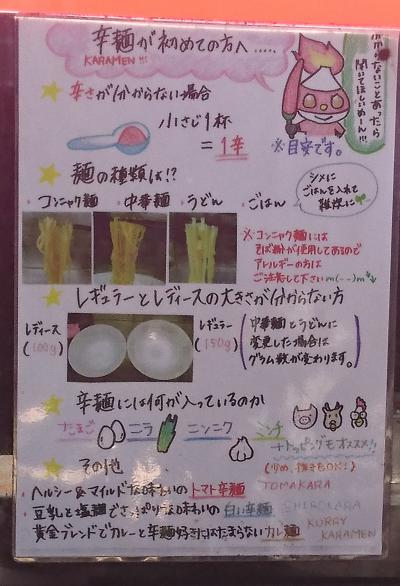 辛麺が初めての方へ.....
KARAMEN!!!
わからないことあったら
聞いてほしいめーん!!!
辛さが分からない場合
小さじ1杯
=1辛
※目安です。
麺の種類は!?
・コンニャク麺 ・中華麺 ・うどん ・ごはん
シメに
ごはんを入れて
雑炊に
※コンニャク麺には
そば粉が使用してあるので
アレルギーの方は
ご注意して下さいm(--)m
レギュラーとレディースの大きさが分からない方
レディース
(100g)
レギュラー
(150g)
中華麺とうどんに
変更した場合は
グラム数が変わります。
辛麺には何が入っているのか
たまご ニラ ニンニク ミンチ
+トッピングもオススメ!!
(少なめ、抜きもOK!)
その他
・ヘルシー&マイルドな味わいのトマト辛麺
TOMAKARA
・豆乳と塩麺でさっぱりな味わいの白い辛麺
SHIROKARA
・黄金ブレンドでカレーと辛麺好きにはたまらないカレ麺
KURRY
KARAMEN